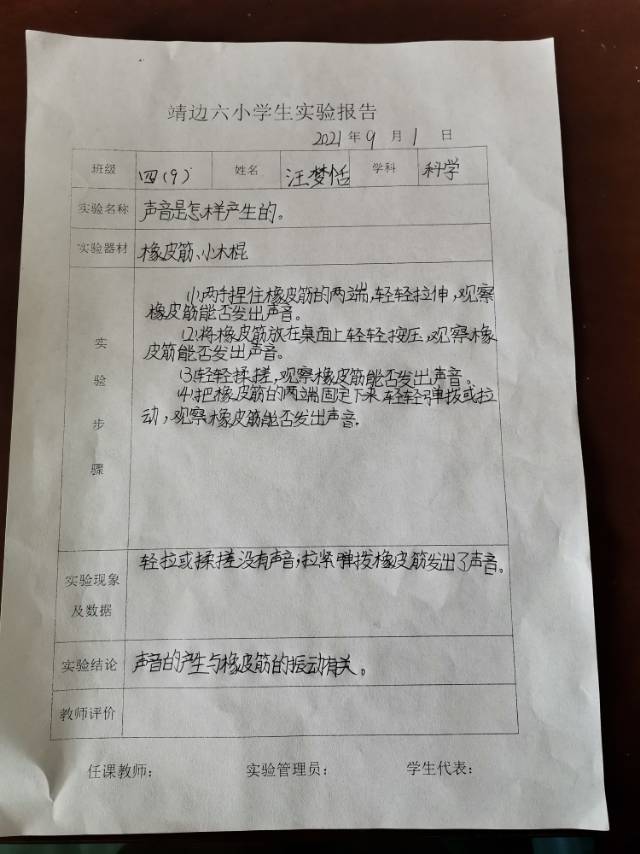 靖边六小学生实验报告
2021年9月1日
班级 四(9) 姓名 汪梦恬 学科 科学
实验名称 声音是怎样产生的。
实验器材 橡皮筋、小木棍
实验步骤
(1)两手捏住橡皮筋的两端,轻轻拉伸,观察
橡皮筋能否发出声音。
(2)将橡皮筋放在桌面上轻轻按压,观察橡
皮筋能否发出声音。
(3)轻轻揉搓,观察橡皮筋能否发出声音。
(4)把橡皮筋的两端固定下来,轻轻弹拨或拉
动,观察橡皮筋能否发出声音.
实验现象及数据 轻拉或揉搓没有声音;拉紧弹拨橡皮筋发出了声音。
实验结论 声音的产生与橡皮筋的振动有关。
教师评价
任课教师: 实验管理员: 学生代表: